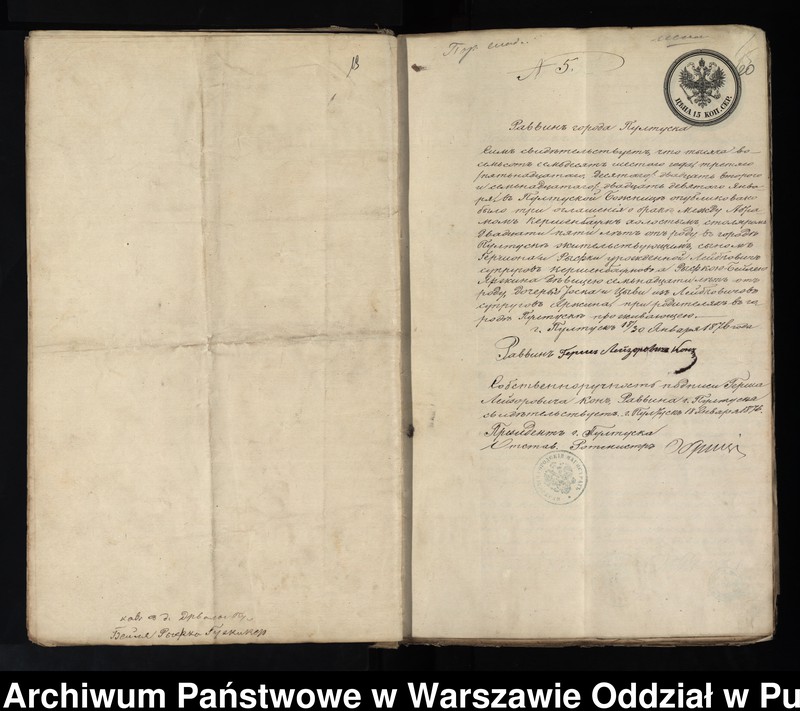 13
Бейля Рыфка
№ 5.
60
ЦѢНА 15 КОП. СЕР.
Раввинъ города Пултуска
Симъ свидѣтельствуетъ, что тысяча во-
семьсотъ семьдесятъ шестого года третяго
/пятьнадцатаго/ десятаго /двадцать второго/
и семьнадцатаго /двадцать девятаго/ Янва-
ря въ Пултуской Божницѣ опубликовано
было три оглашенія о бракѣ между Абра-
момъ Кершенбаумъ холостымъ столяромъ
двадцати пяти лѣтъ отъ роду въ городѣ
Пултускѣ жительствующимъ, сыномъ
Гершона и Рыфки урожденной Лейбовичъ
супруговъ Кершенбаумовъ а Рыфкою-Бейлею
дѣвицею семьнадцати лѣтъ отъ
роду дочерью Іоска и Цывы изъ Лейбовичовъ
супруговъ при родителяхъ въ го-
родѣ Пултускѣ проживающею.
г. Пултускъ 18/30 Января 1876 года
Раввинъ Гершъ Лейзоровичъ Конъ
Собственноручность подписи Герша
Лейзоровича Конъ, Раввина г. Пултуска
свидѣтельствуетъ г. Пултускъ 18 Января 1876.
Президентъ г. Пултуска
Отстав. Ротмистръ
Archiwum Państwowe w Warszawie Oddział w Pu